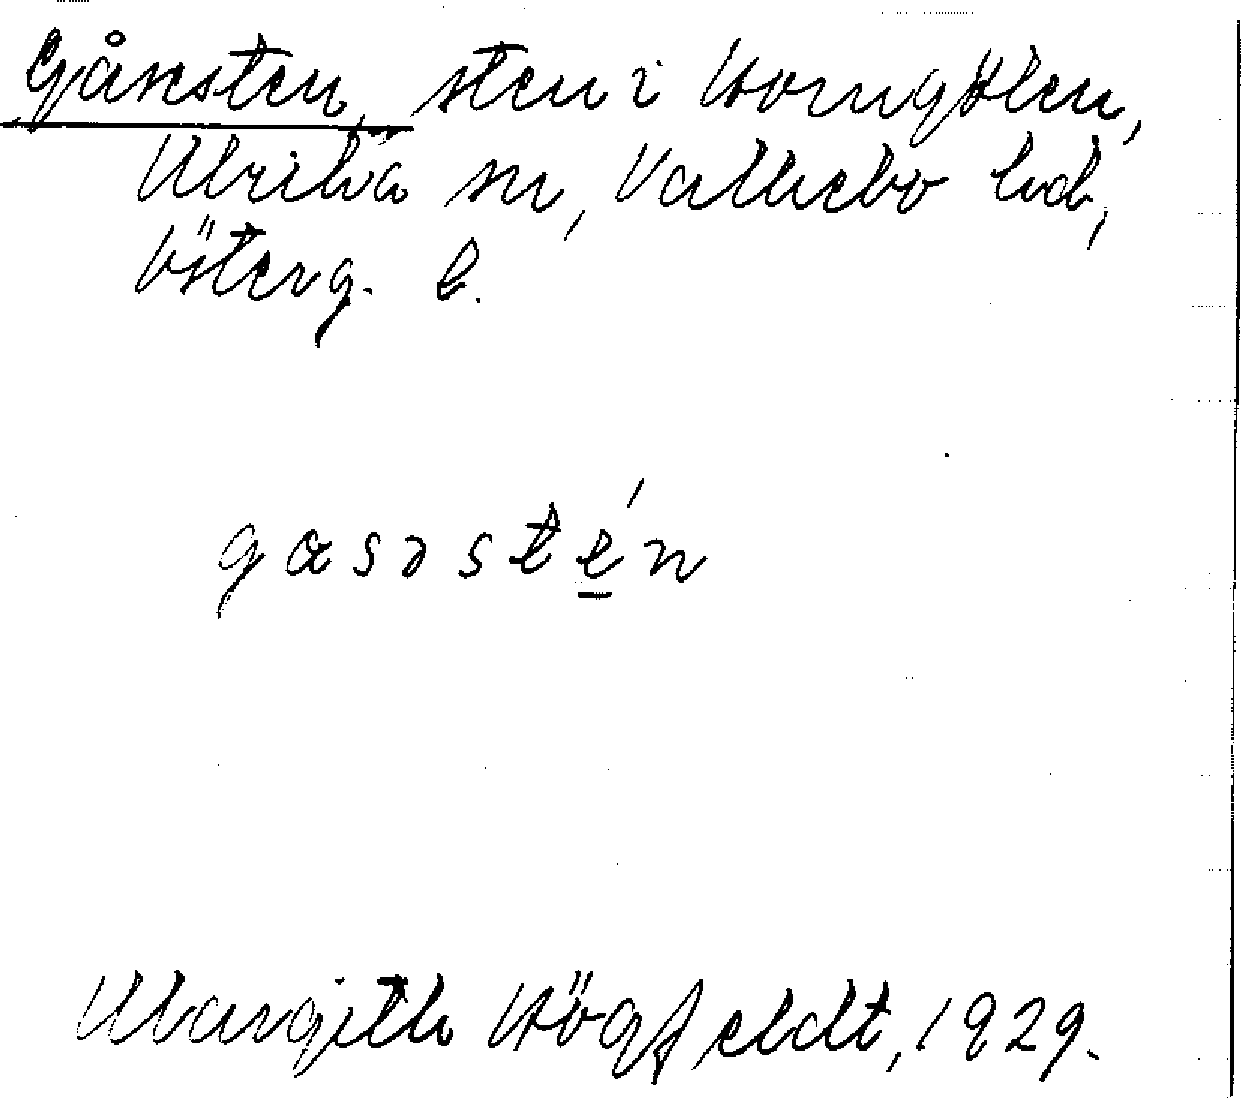 Gåsesten, sten i Horngölen,
Ulrika sn, Valkebo hd,
Österg. l.
gasəstén
Margith Högfeldt, 1929.